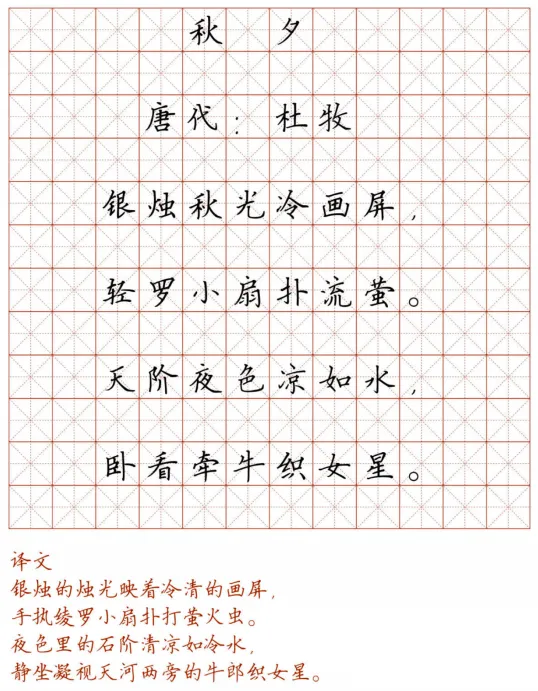 秋 夕
唐代：杜牧
银烛秋光冷画屏，
轻罗小扇扑流萤。
天阶夜色凉如水，
卧看牵牛织女星。
译文
银烛的烛光映着冷清的画屏，
手执绫罗小扇扑打萤火虫。
夜色里的石阶清凉如冷水，
静坐凝视天河两旁的牛郎织女星。